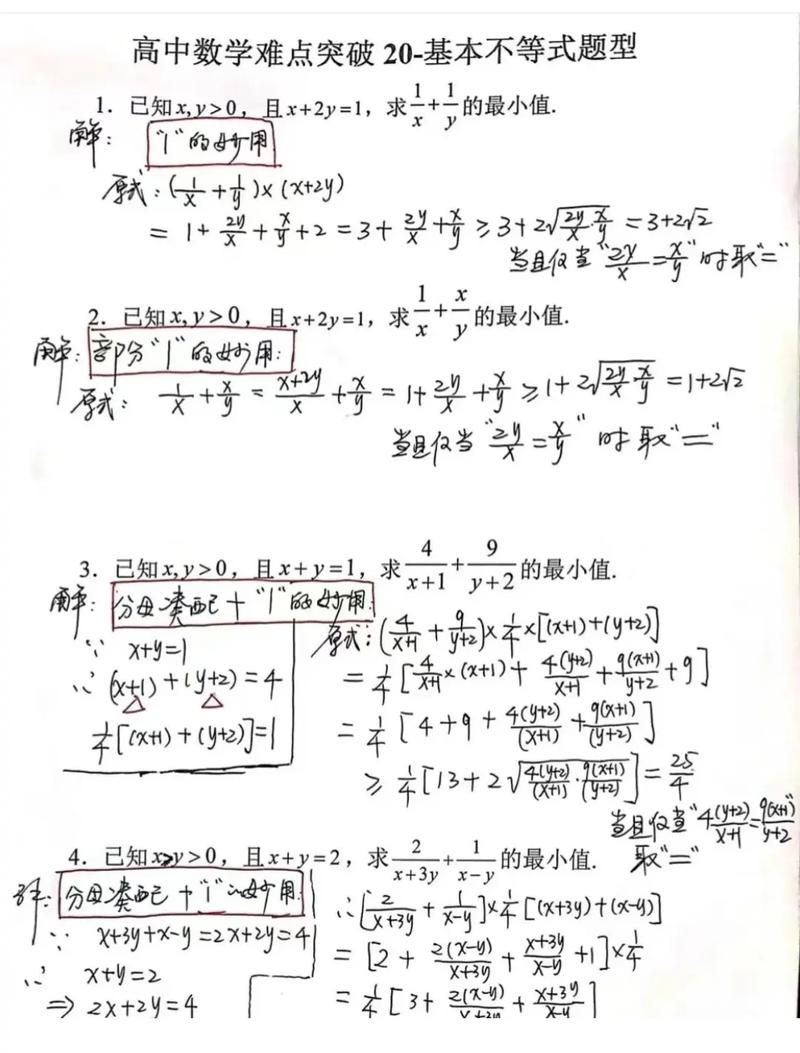 高中数学难点突破 20-基本不等式题型
1. 已知 x, y > 0，且 x+2y=1，求 1/x + 1/y 的最小值.
解： "1"的妙用
原式：(1/x + 1/y)×(x+2y)
= 1 + 2y/x + x/y + 2 = 3 + 2y/x + x/y ≥ 3 + 2√(2y/x · x/y) = 3+2√2
当且仅当"2y/x = x/y"时取"="
2. 已知 x, y > 0，且 x+2y=1，求 1/x + x/y 的最小值.
解：部分"1"的妙用：
原式： 1/x + x/y = (x+2y)/x + x/y = 1 + 2y/x + x/y ≥ 1 + 2√(2y/x · x/y) = 1+2√2
当且仅当"2y/x = x/y"时取"="
3. 已知 x, y > 0，且 x+y=1，求 4/(x+1) + 9/(y+2) 的最小值.
解：分母凑配 + "1"的妙用：
∵ x+y=1
∴ (x+1)+(y+2)=4
1/4[(x+1)+(y+2)]=1
原式：(4/(x+1) + 9/(y+2))×1/4×[(x+1)+(y+2)]
= 1/4[4/(x+1)×(x+1) + 4(y+2)/(x+1) + 9(x+1)/(y+2) + 9]
= 1/4[4+9+ 4(y+2)/(x+1) + 9(x+1)/(y+2)]
≥ 1/4[13+2√(4(y+2)/(x+1) · 9(x+1)/(y+2))] = 25/4
当且仅当"4(y+2)/(x+1) = 9(x+1)/(y+2)"
取"="
4. 已知 x>y>0，且 x+y=2，求 2/(x+3y) + 1/(x-y) 的最小值.
解：分母凑配 + "1"的妙用
∵ x+3y+x-y=2x+2y=4
∴ x+y=2
⇒ 2x+2y=4
∴[2/(x+3y) + 1/(x-y)]×1/4[(x+3y)+(x-y)]
= [2 + 2(x-y)/(x+3y) + (x+3y)/(x-y) + 1]×1/4
= 1/4[3 + 2(x-y)/(x+3y) + (x+3y)/(x-y)]